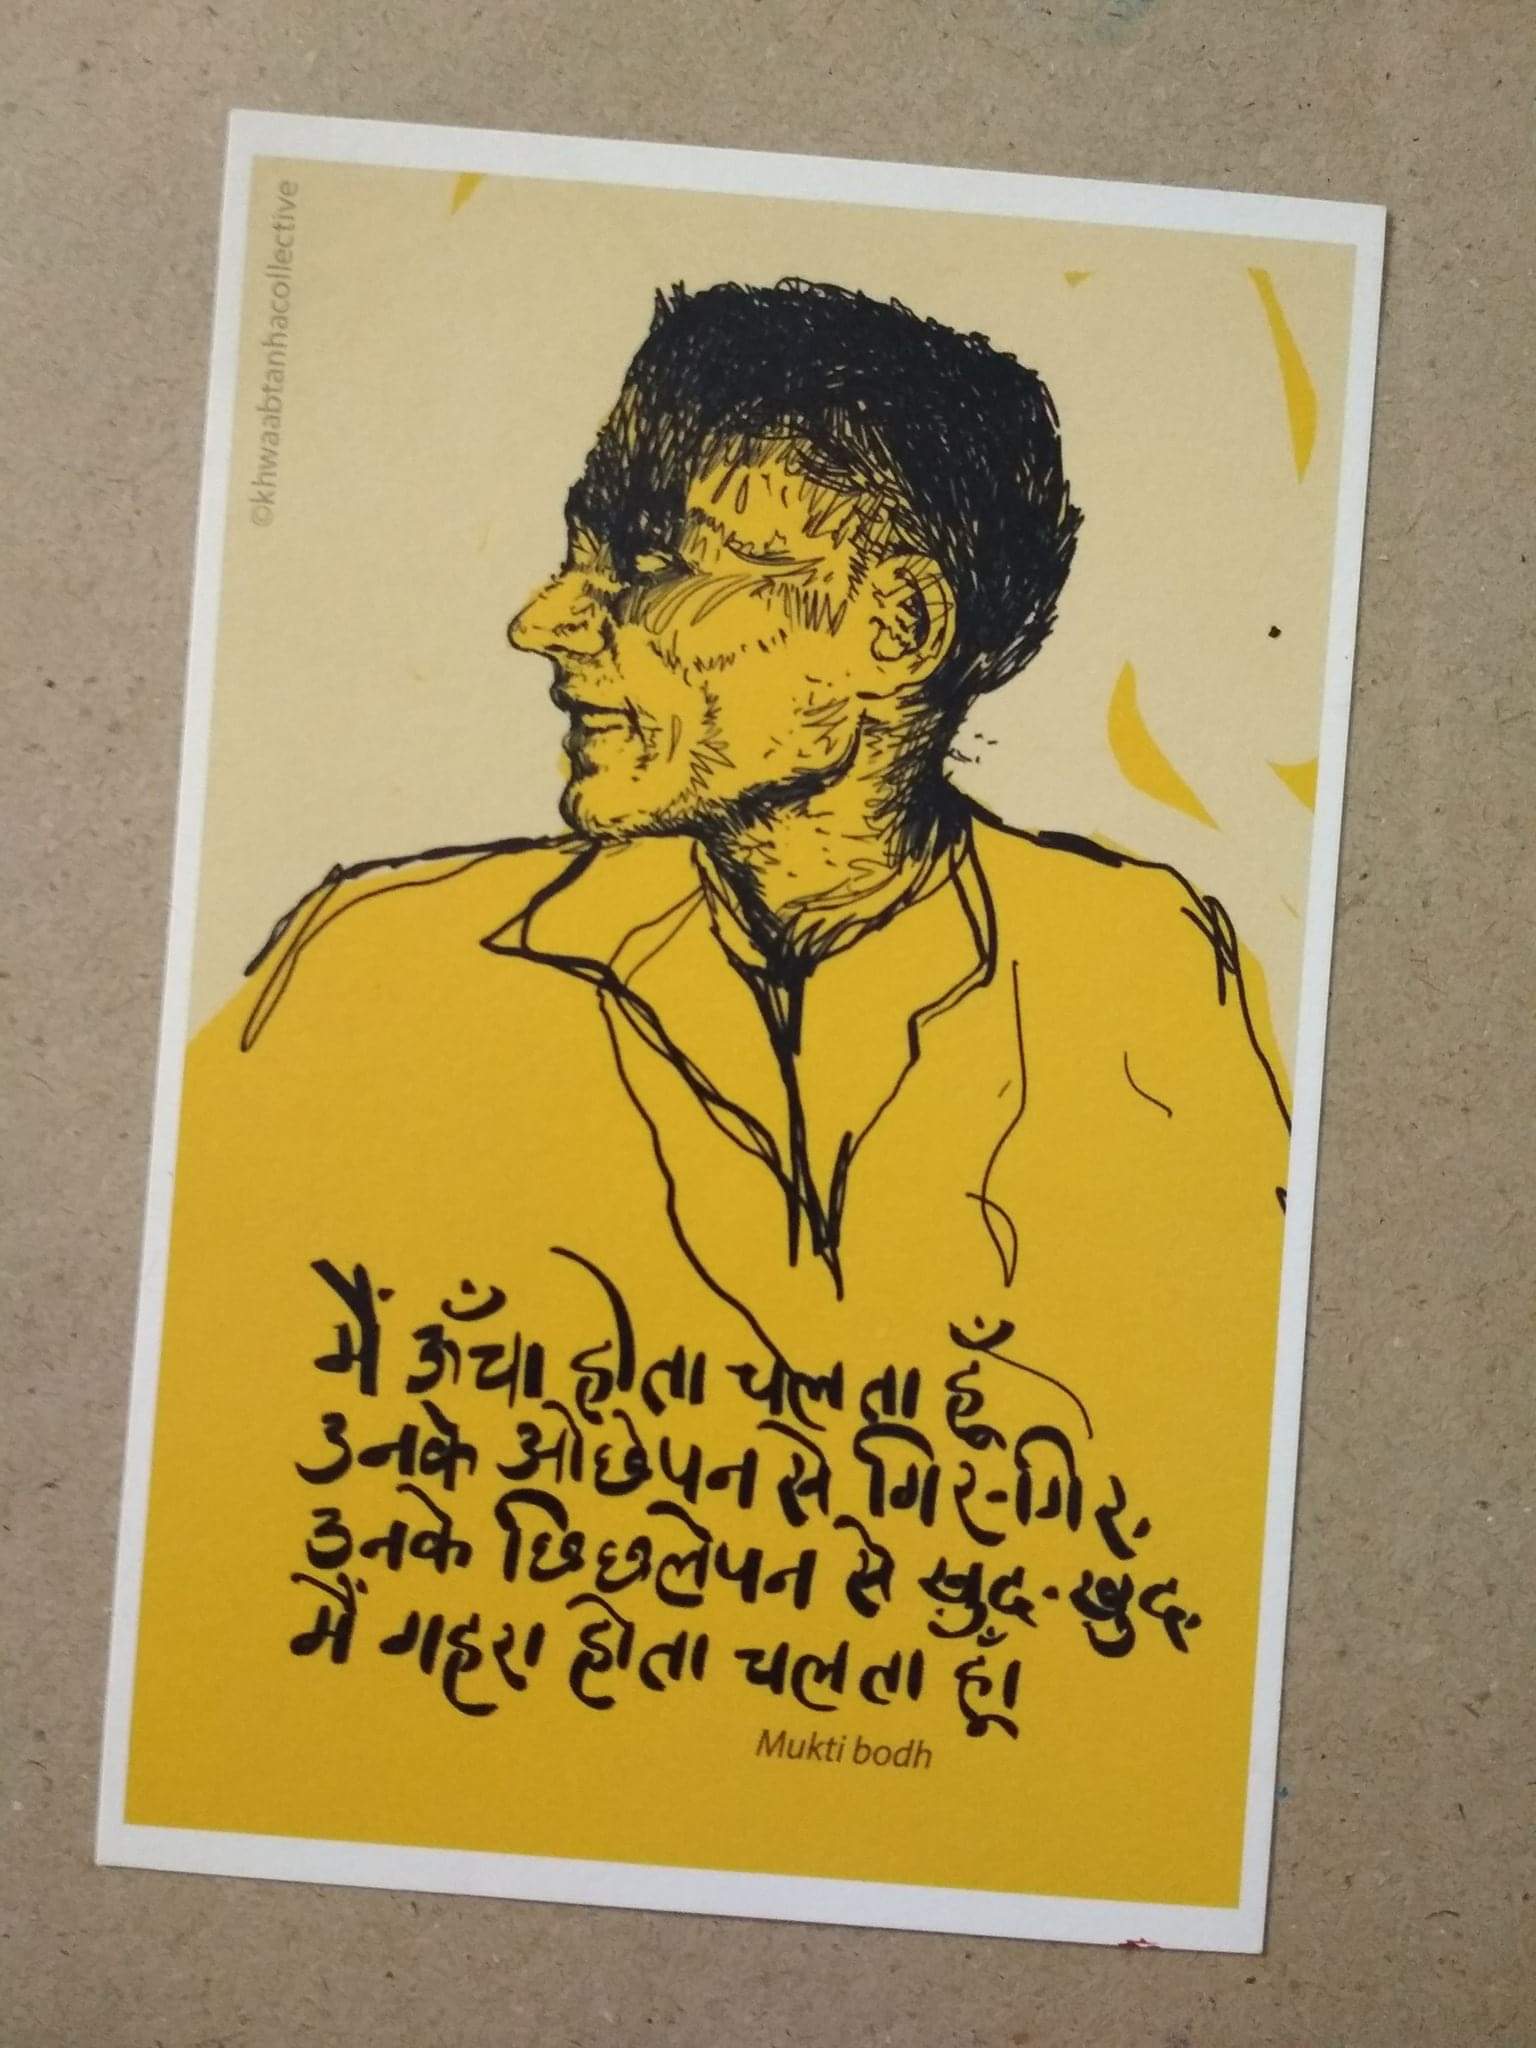 ©khwaabtanhacollective
मैं ऊँचा होता चलता हूँ
उनके ओछेपन से गिर-गिर,
उनके छिछलेपन से खुद-खुद,
मैं गहरा होता चलता हूँ।
Mukti bodh